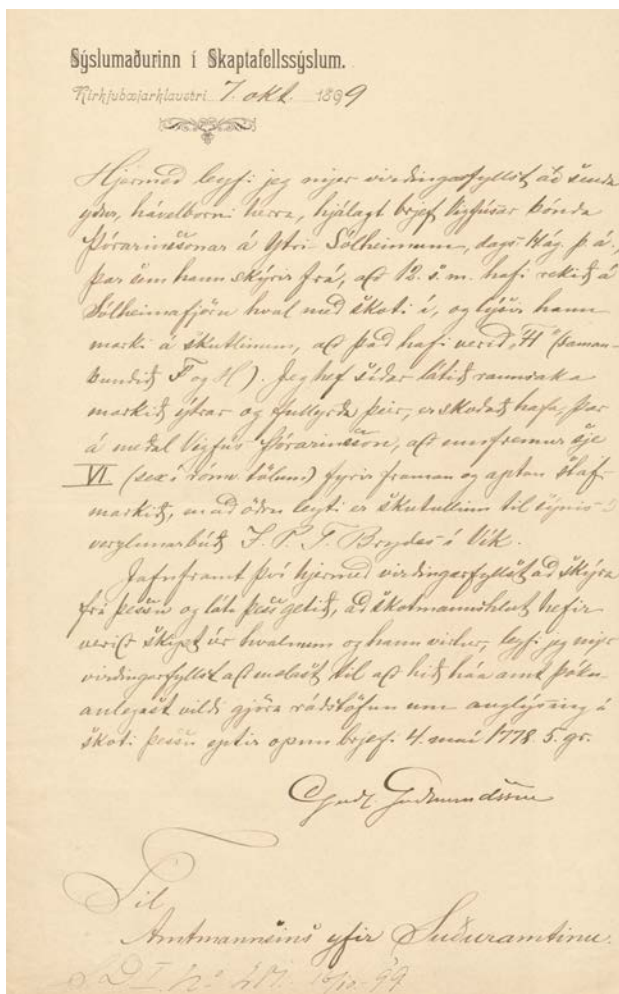 Sýslumaðurinn í Skaptafellssýslum.
Kirkjubæjarklaustri 7. okt. 1899
Hjermeð leyfi jeg mjer virðingarfyllst að senda
yður, hávelborni herra, hjálagt brjef Vigfúsar bónda
Þórarinssonar á Ytri Sólheimum, dags. 14 ág. þ. á.,
þar sem hann skýrir frá, að 12. s. m. hafi rekið á
Sólheimafjöru hval með skoti í, og lýsir hann
marki á skutlinum, að það hafi verið "FH" (saman-
bundið F og H). Jeg hef síðar látið rannsaka
markið ýtrar og fullyrða þeir, er skoðað hafa, þar
á meðal Vigfús Þórarinsson, að ennfremur sje
VI (sex í rómv. tölum) fyrir framan og aptan staf-
markið, að öðru leyti er skutullinn til sýnis í
verzlunarbúð J. P. T. Brydes í Vík.
Jafnframt því hjermeð virðingarfyllst að skýra
frá þessu og láta þess getið, að skotmannshlut hefir
verið skipt úr hvalnum og hann virtur, leyfi jeg mjer
virðingarfyllst að mælast til að hið háa amt þókn-
anlegast vildi gjöra ráðstöfun um auglýsing á
skoti þessu eptir opnu brjefi 4. maí 1778. 5. gr.
Guðl. Guðmundsson
Til
Amtmannsins yfir Suðuramtinu.